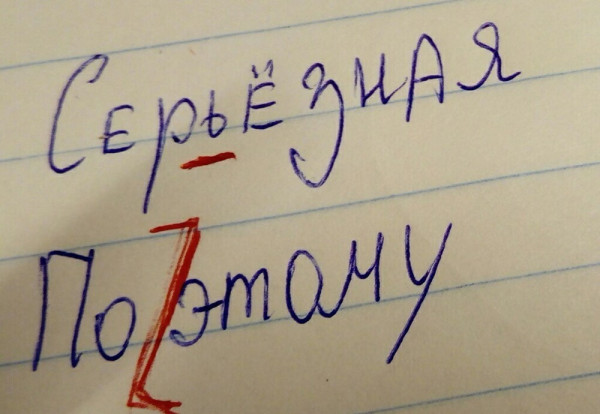 Серьёзная
Поэтому